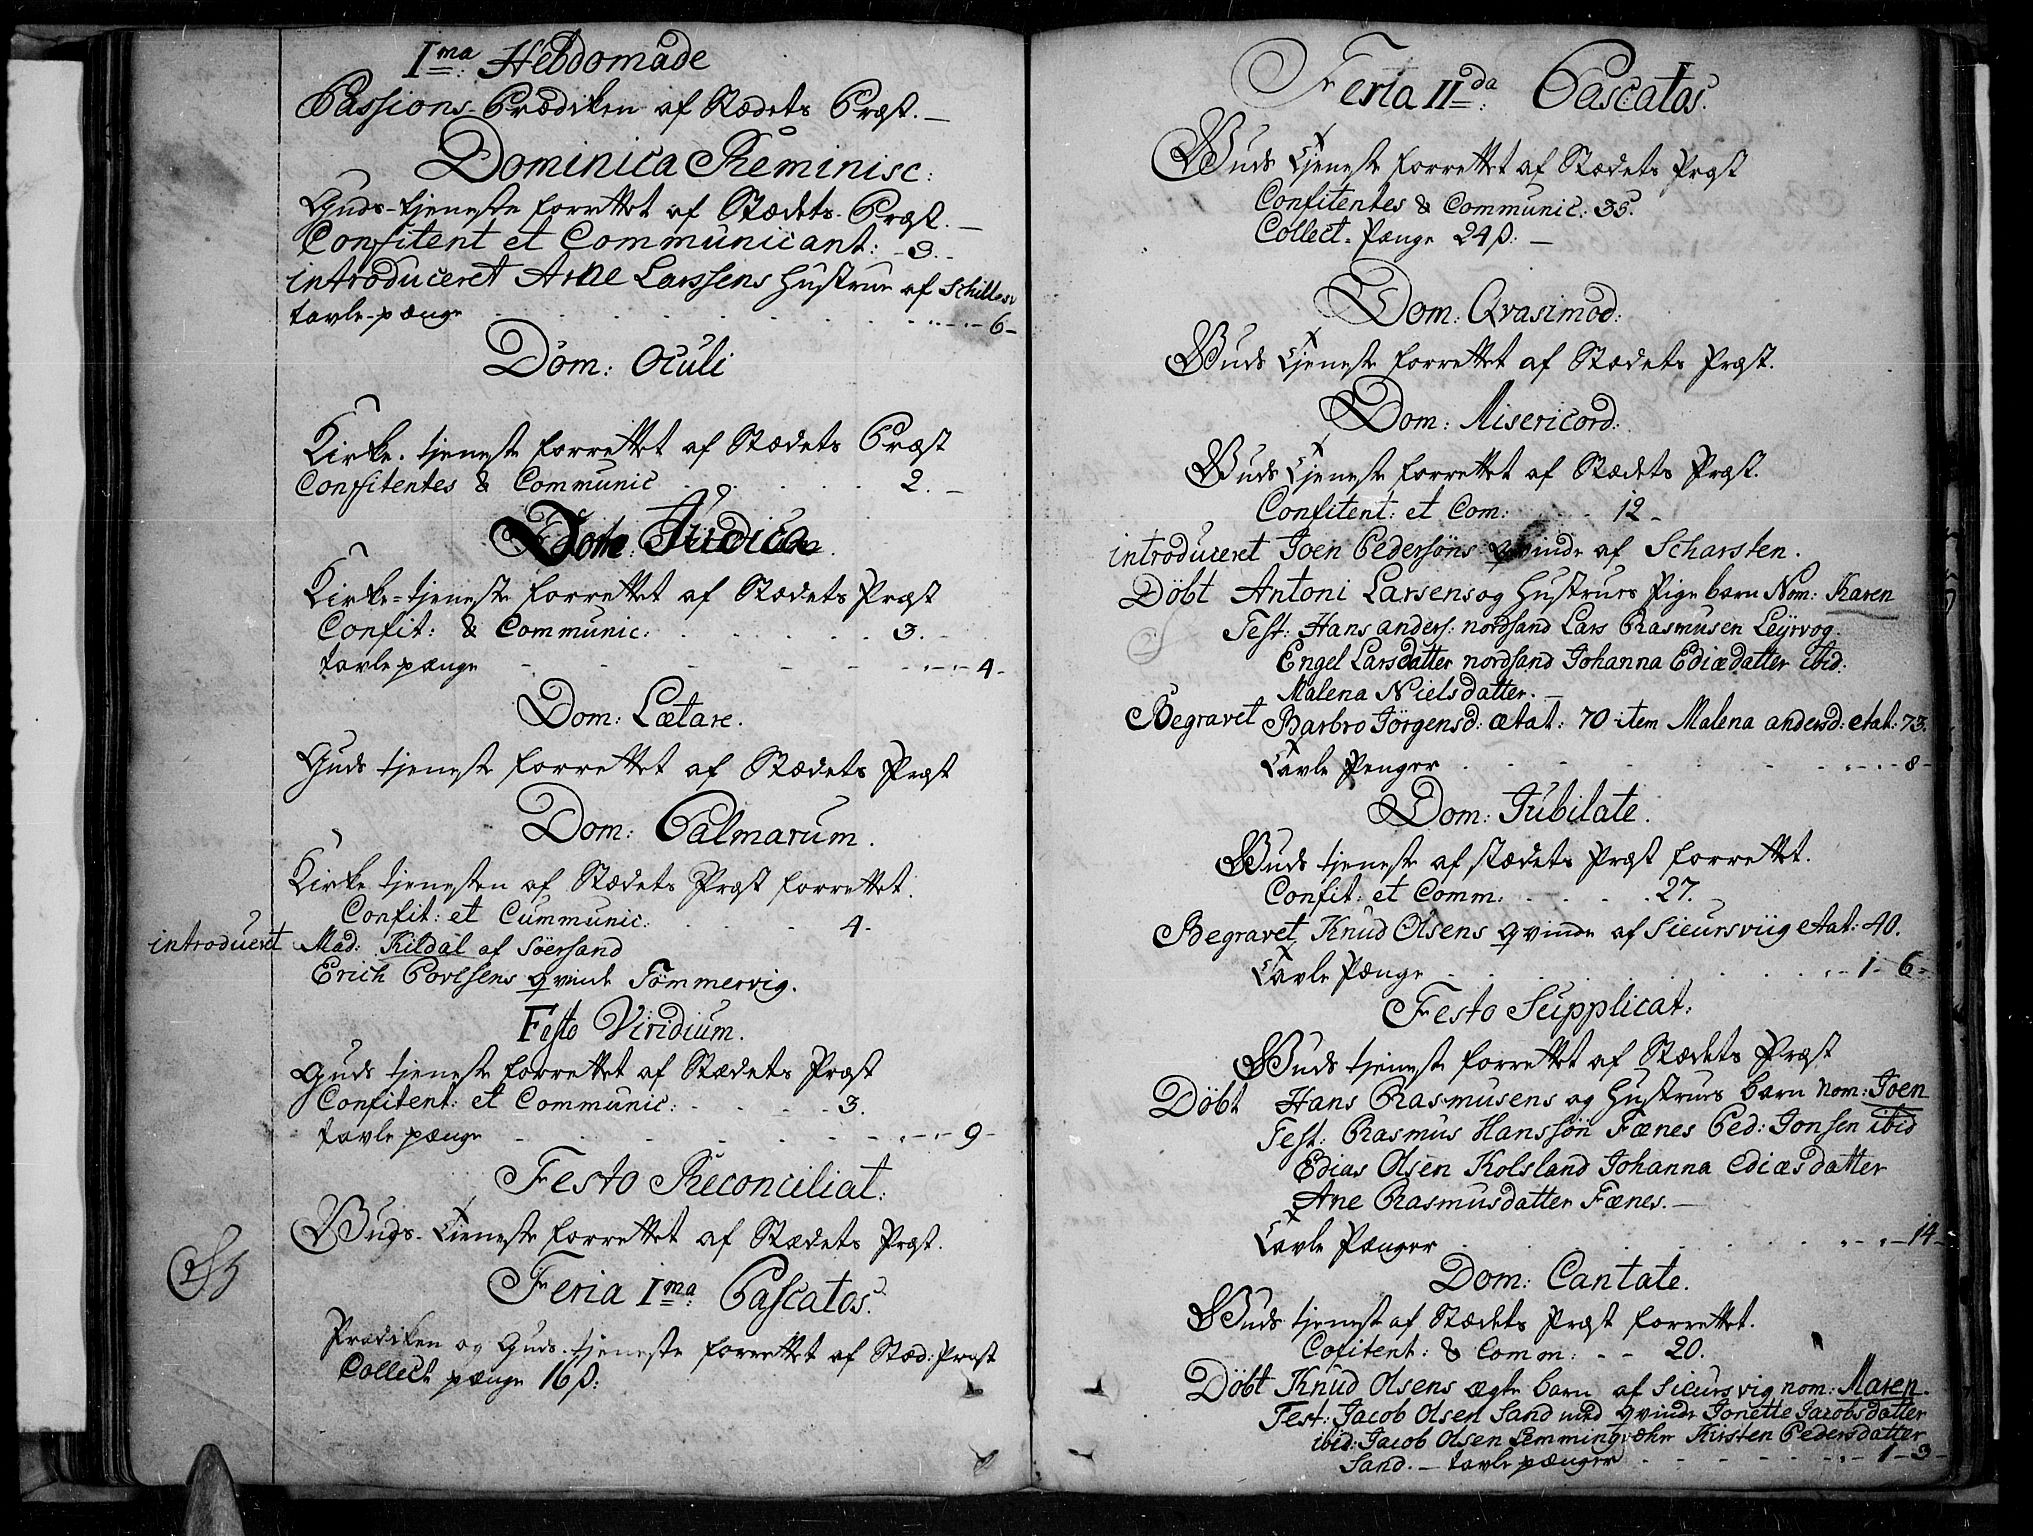 I^ma: Hebdomade
Passions-Prædiken af Stædets Præst. —
Dominica Reminisc:
Guds-tjeneste forrettet af Stædets Præst. —
Confitent et Communicant: - 3. —
introduceret Arne Larssens Hustrue af
tavle-pænge - - - 6 -
Dom: Oculi
Kirke-tjeneste forrettet af Stædets Præst
Confitentes & Communic - - - 2. —
Dom: Judica
Kirke-tjeneste forrettet af Stædets Præst
Confit: & Communic: - - - 3. -
tavlepænge - - - 4 -
Dom: Lætare.
Guds tjeneste forrettet af Stædets Præst
Dom: Palmarum.
Kirke tjenesten af Stædets Præst forrettet.
Confit: et Cummunic: - - - 4 -
introdueret Mad: Kildal af Söersand
Erich Povlsens qvinde Tömmervig.
Festo Viridium.
Guds tjeneste forrettet af Stædets Præst
Confitent: et Communic: - - - 3.
tavlepænge - - - 9 -
Festo Reconciliat:
Guds-Tieneste forrettet af Stædets Præst.
Feria I^ma: Pascatos.
Prædiken og Guds-tjeneste forrettet af Stæd: Præst
Collect pænge 16 ß:
Feria II^da: Pascatos.
Guds Tjeneste forrettet af Stædets Præst
Confitentes & Communic: 35.
Collect-Pænge 24 ß: —
Dom: Qvasimod:
Guds Tjeneste forrettet af Stædets Præst.
Dom: Misericord:
Guds Tjeneste forrettet af Stædets Præst.
Confitent: et Com: - - 12 -
introduceret Joen Pedersöns qvinde af Scharsten.
Döbt Antoni Larsens og Hustrues Pige barn Nom: Karen
Test: Hans anders: nordsand Lars Rasmusen Leyrvog.
Engel Larsdatter nordsand Johanna Ediædatter ibid:
Malena Nielsdatter. —
Begravet Barbro Jörgensd: ætat: 70 item Malena andersd: etat: 73.
Tavle Penger - - - 8 -
Dom: Jubilate.
Guds tjeneste af stædets Præst forrettet.
Confit: et Comm: - - - 27.
Begravet Knud Olsens qvinde af Sieursviig etat: 40.
Tavle Pænge - - - 1 - 6 -
Festo Supplicat:
Guds tjeneste forrettet af Stædets Præst
Döbt Hans Rasmusens og Hustrues barn nom: Joen
Test: Rasmus Hanssön Fænes Ped: Jonsen ibid
Edias Olsen Kolsland Johanna Ediæsdatter
Ane Rasmusdatter Fænes. —
Tavle Pænger - - - 14 -
Dom: Cantate.
Guds tjenest af Stædets Præst forrettet.
Cofitent: & Comm: - - 20.
Döbt Knud Olsens ægte barn af Sieursvig nom: Maren.
Test: Jacob Olsen Sand med qvinde Jonette Jacobsdatter
ibid: Jacob Olsen Kirsten Pedersdatter
Sand. — tavlepænger - - - 1 - 3 -